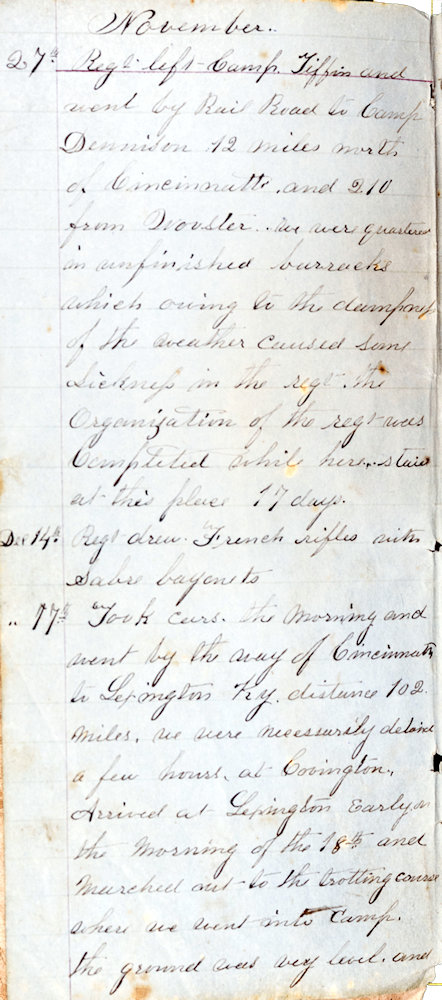 November..
27th Regt left Camp Tiffin and
went by Rail Road to Camp
Dennison 12 miles north
of Cincinnatti. and 210
from Wooster.. we were quartered
in unfinished barracks
which owing to the dampness
of the weather caused some
Sickness in the regt. the
Organization of the regt was
Completed while here.. staid
at this place 17 days.
Dec 14th Regt drew French rifles with
Sabre bayonets
" 17th Took cars. the Morning and
went by the way of Cincinnatti
to Lexington Ky. distance 102
miles. we were necessarily detained
a few hours. at Covington.,
Arrived at Lexington Early on
the Morning of the 18th and
Marched out to the trotting course
where we went into Camp.
the ground was very level. and